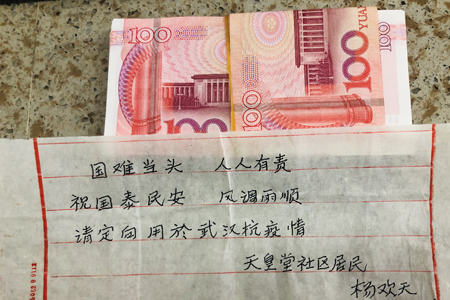 100
YUAN
100
100
100
国难当头 人人有责
祝国泰民安 风调雨顺
请定向用於武汉抗疫情
天皇堂社区居民
杨欢天